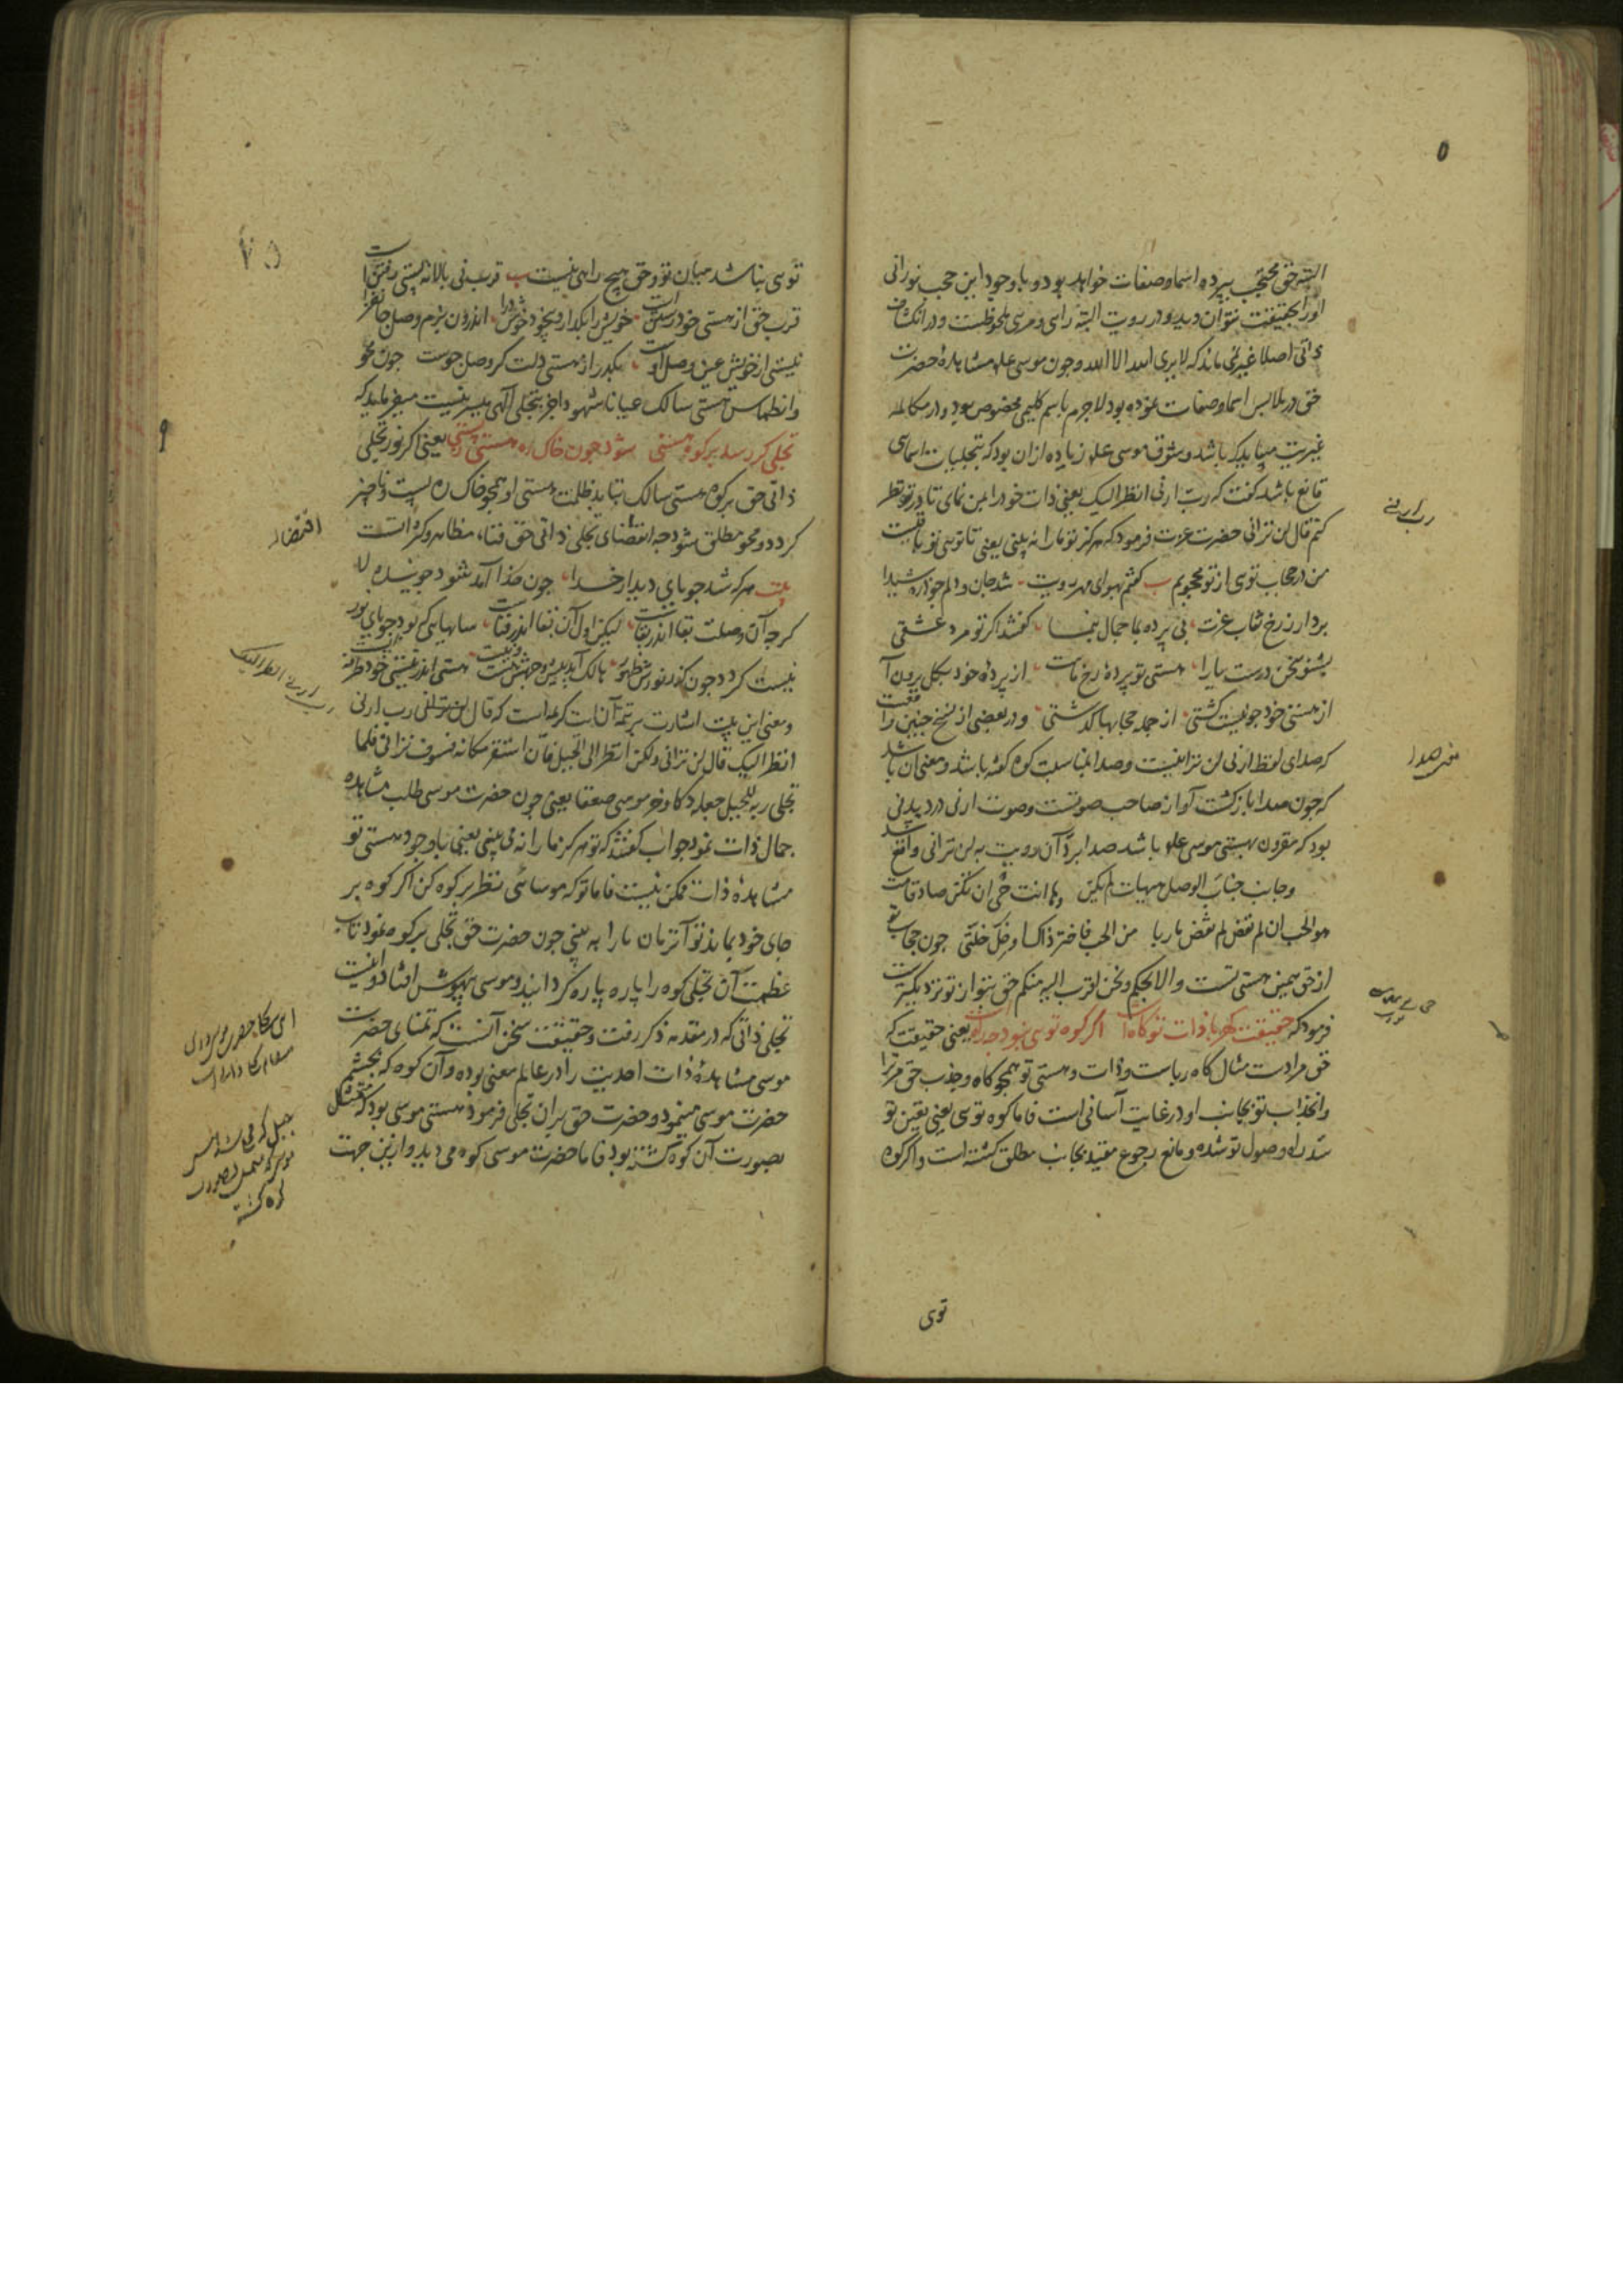 البته حق محتجب بپرده اسما و صفات خواهد بود و با وجود این حجب نورانی
او را بحقیقت نتوان دید و در رویت البته رائی و مرئی ملحوظست و در انکشاف
ذاتی اصلا غیر نمی ماند که لا یری الله الا الله و چون موسی علیه مشاهدهٔ حضرت
حق در ملابس اسما و صفات نموده بود لاجرم باسم کلیمی مخصوص بود و در مکالمه
غیریت میباید که باشد و شوق موسی علیه زیاده از ان بود که بتجلیات اسمای
قانع باشد گفت که رب ارنی انظر الیک یعنی ذات خود را بمن نمای تا در تو نظر
کنم قال لن ترانی حضرت عزت فرمود که هرگز تو مارا نه بینی یعنی تا توئی تو باقیست
من در حجاب توی از تو محجوبم گفتم بهوای مهر رویت شد جان و دلم چو ذره شیدا
بردار ز رخ نقاب عزت بی پرده بما جمال بنما گفتند اگر تو مرد عشقی
بشنو سخن درست یارا هستی تو پردهٔ رخ ماست از پردهٔ خود بکل برون آ
از هستی خود چو نیست گشتی از جمله حجابها گذشتی و در بعضی از نسخ چنین واقعست
که صدای لفظ ارنی لن ترانیست و صدا بمناسبت کوه گفته باشد و معنی آن باشد
که چون صدا باز گشت آواز صاحب صوتست و صوت ارنی در دیدنی
بود که مقرون بهستی موسی علیه باشد صدا برد آن رویت به لن ترانی واقع شد
وجانب جناب الوصل هیهات لم یکن وها انت حی ان تکن صادقا مت
هو الحب ان لم تقض لم تقض ماربا من الحب فاختر ذاک او خل خلتی چون حجاب تو
از حق همین هستی تست والا بحکم و نحن اقرب الیه منکم حق بتو از تو نزدیکترست
فرمود که حقیقت کهربا ذات تو کاه است اگر کوه توی نبود چه راه است یعنی حقیقت که
حق مرادست مثال کاه رباست و ذات و هستی تو همچو کاه و جذب حق مر ترا
و انجذاب تو بجانب او در غایت آسانی است فاما کوه توی یعنی تعین تو
سد راه وصول تو شده و مانع رجوع مقید بجانب مطلق گشته است و اگر کوه
توی
رب ارنی
معنی صدا
توی نباشد میان تو و حق هیچ راهی نیست قرب نی بالا نه پستی رفتن است
قرب حق از هستی خود رستن است خویش را بگذار و بیخود خوش درا اندرون بزم وصل جانفزا
نیستی از خویش عین وصل اوست بگذر از هستی دلت گر وصل جوست چون محو
و انطماس هستی سالک عیانا شهودا جز بتجلی الهی میسر نیست میفرماید که
تجلی گر رسد بر کوه هستی شود چون خاک ره هستی ز پستی یعنی اگر نور تجلی
ذاتی حق بر کوه هستی سالک بتابد ظلمت هستی او همچو خاک ره پست و ناچیز
گردد و محو مطلق شود چه اقتضای تجلی ذاتی حق فناء مظاهر و کثراتست
بیت هر که شد جویای دیدار خدا چون خدا آمد شود جوینده لا
گرچه آن وصلت بقا اندر بقاست لیکن اول آن بقا اندر فناست سایهایی که بود جویای نور
نیست گردد چون کند نورش ظهور هالک آید پیش وجهش هست و نیست هستی اندر نیستی خود طرفه ایست
و معنی این بیت اشارت بر تتمه آن آیت کریمه است که قال لن ترانی رب ارنی
انظر الیک قال لن ترانی ولکن انظر الی الجبل فان استقر مکانه فسوف ترانی فلما
تجلی ربه للجبل جعله دکا و خر موسی صعقا یعنی چون حضرت موسی طلب مشاهده
جمال ذات نمود جواب گفتند که تو هرگز ما را نه بینی یعنی با وجود هستی تو
مشاهدهٔ ذات ممکن نیست فاما تو که موسائی نظر بر کوه کن اگر کوه بر
جای خود بماند تو آنزمان ما را به بینی چون حضرت حق تجلی بر کوه نمود تاب
عظمت آن تجلی کوه را پاره پاره گردانید و موسی بیهوش افتاد و اینست
تجلی ذاتی که در مقدمه ذکر رفت و حقیقت سخن آنست که تمنای حضرت
موسی مشاهدهٔ ذات احدیت را در عالم معنی بوده و آن کوه که بچشم
حضرت موسی مینمود و حضرت حق بران تجلی فرمود هستی موسی بود که متمثل
بصورت آن کوه گشته بود فاما حضرت موسی کوه می دید و از ین جهت
رب ارنی انظر الیک